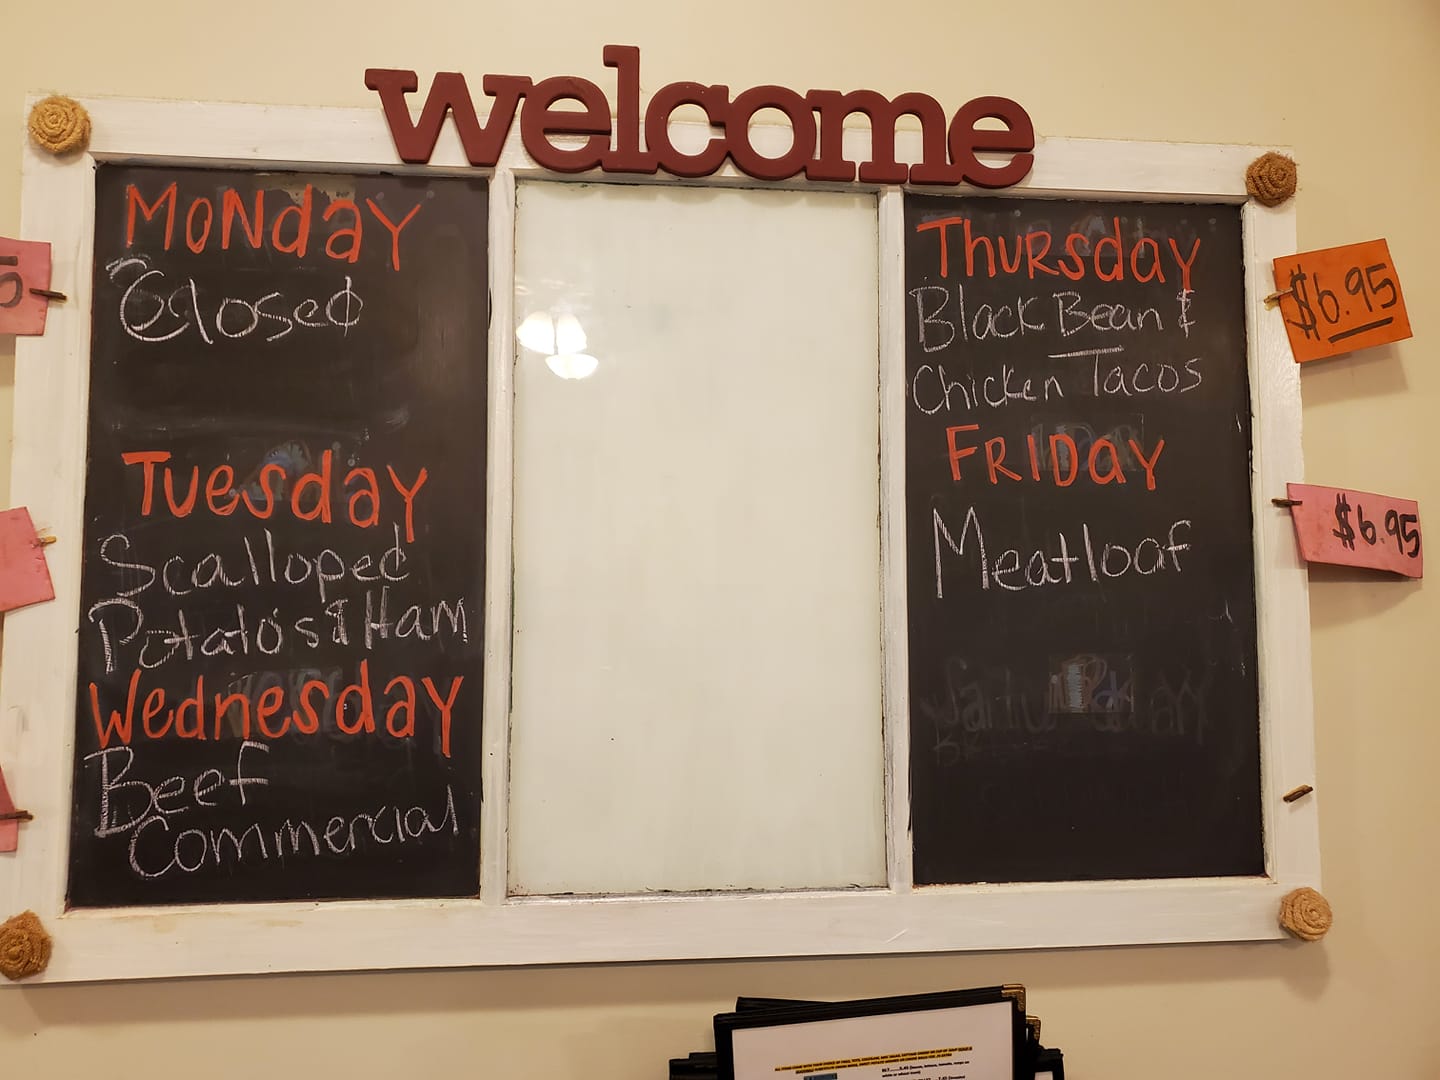 welcome
Monday
Closed
Tuesday
Scalloped
Potato's & Ham
Wednesday
Beef
Commercial
Thursday
Black Bean &
Chicken Tacos
Friday
Meatloaf
Saturday
$6.95
$6.95